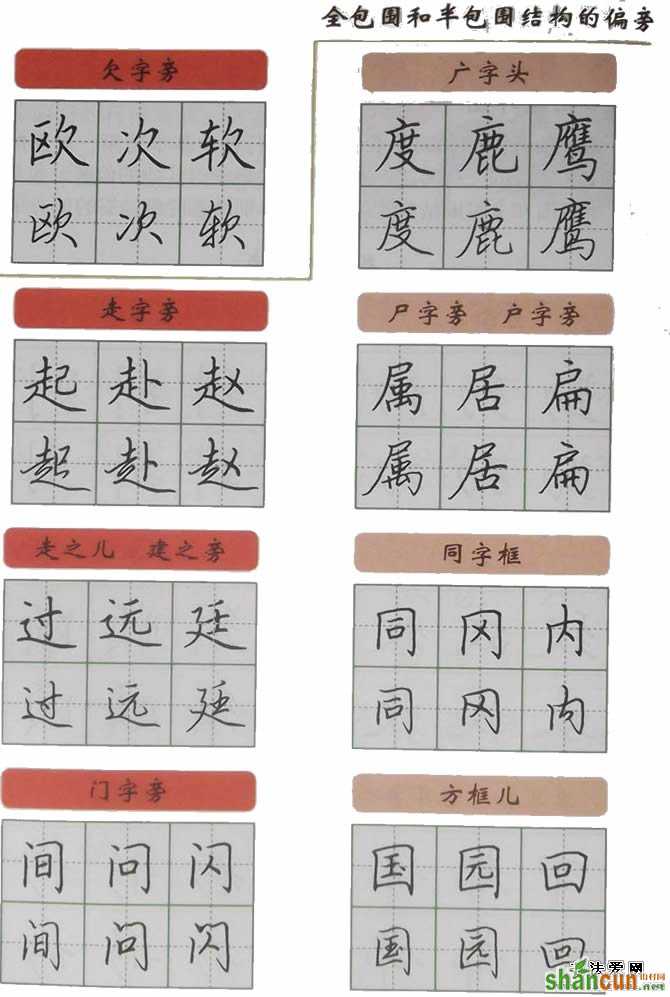 全包围和半包围结构的偏旁
欠字旁
欧次软
欧次软
广字头
度鹿鹰
度鹿鹰
走字旁
起赴赵
起赴赵
尸字旁 户字旁
属居扁
属居扁
走之儿 建之旁
过远廷
过远廷
同字框
同冈内
同冈内
门字旁
间问闪
间问闪
方框儿
国园回
国园回
法爱网
shancun
.net